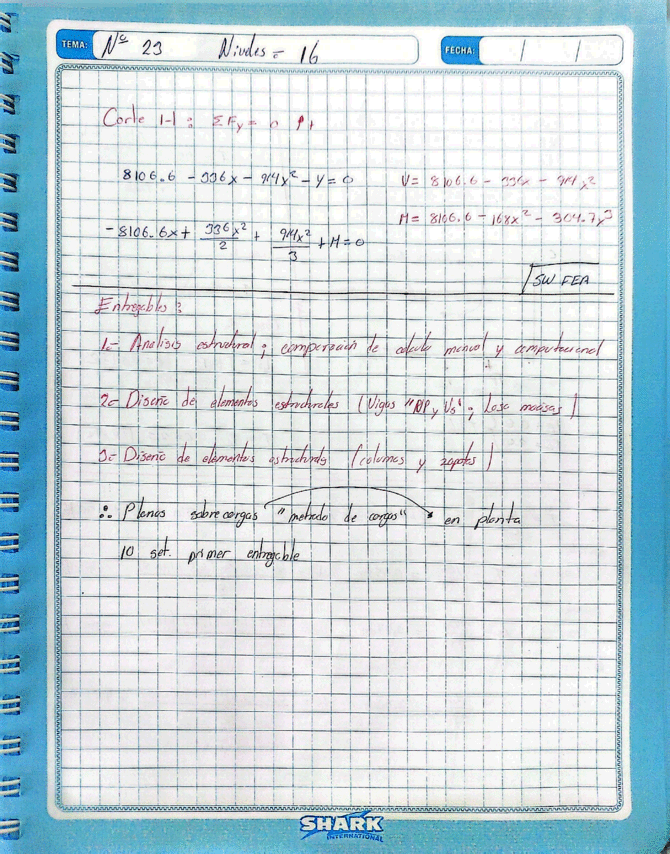 TEMA: Nº 23 Niveles = 16 FECHA: / /
Corte 1-1 : ΣFy = 0 ↑+
8106.6 - 336x - 914x² - V = 0
V = 8106.6 - 336x - 914x²
M = 8106.6 - 168x² - 304.7x³
-8106.6x + 336x²/2 + 914x²/3 + M = 0
SW FEA
Entregables :
1.- Analisis estructural ; comparación de calculo manual y computacional
2.- Diseño de elementos estructurales (Vigas "NP y Vs" ; Losa macisas)
3.- Diseño de elementos estructurales (columnas y zapatas)
∴ Planos sobrecargas "metrado de cargas" en planta
10 set. primer entregable
SHARK
INTERNATIONAL